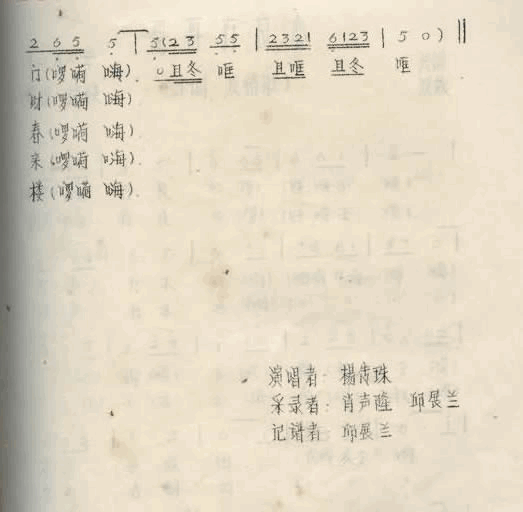 2 6 5 5 | 5(2 3 5 5 | 2321 6123 | 5 0) ‖
门(啰嗬 嗨). 0且冬 哐 且哐 且冬 哐
财(啰嗬 嗨).
春(啰嗬 嗨).
来(啰嗬 嗨).
楼(啰嗬 嗨).
演唱者: 杨秀珠
采录者: 肖声隆 邱展兰
记谱者 邱展兰